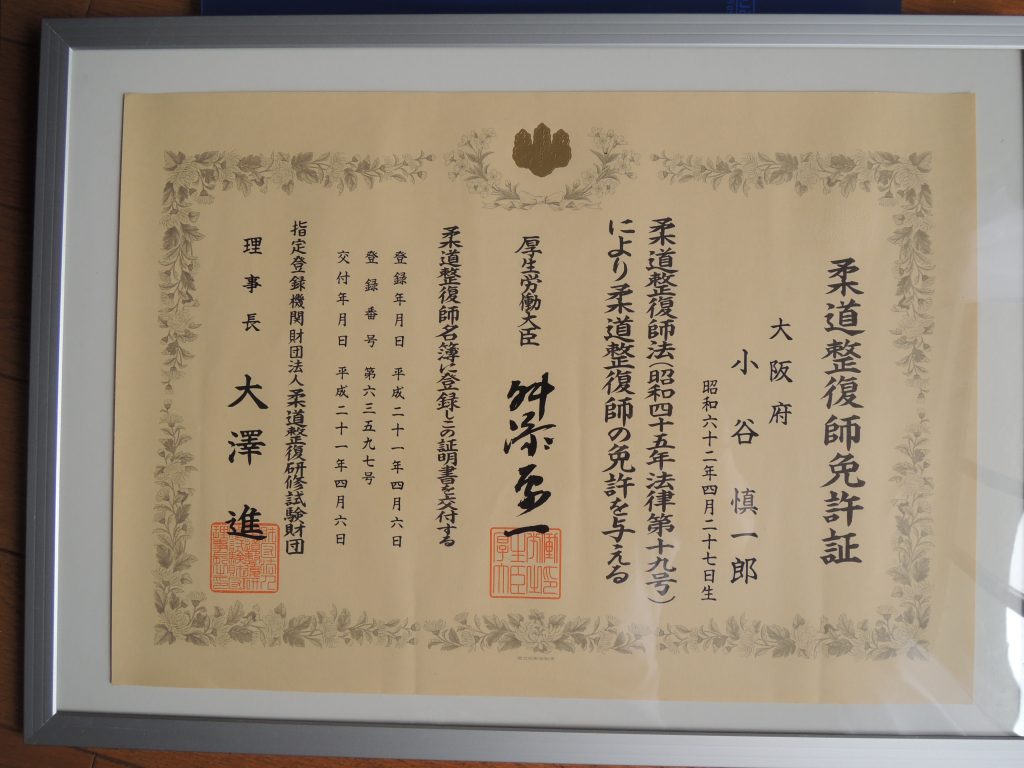 柔道整復師免許証
大阪府
小谷慎一郎
昭和六十二年四月二十七日生
柔道整復師法(昭和四十五年法律第十九号)
により柔道整復師の免許を与える
厚生労働大臣 舛添要一
柔道整復師名簿に登録しこの証明書を交付する
登録年月日 平成二十一年四月六日
登録番号 第六三五九七号
交付年月日 平成二十一年四月六日
指定登録機関財団法人柔道整復研修試験財団
理事長 大澤進